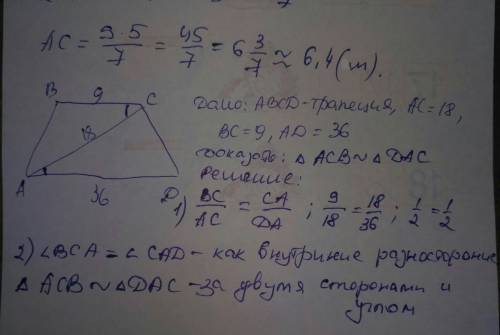 AC = 9·5/7 = 45/7 = 6 3/7 ≈ 6,4 (m).
B 9 C
18
A 36 D
Дано: ABCD-трапеция, AC=18,
BC=9, AD=36
Доказать: △ACB∼△DAC
Решение:
1) BC/AC = CA/DA ; 9/18 = 18/36 ; 1/2 = 1/2
2) ∠BCA = ∠CAD - как внутриние разносторонние
△ACB∼△DAC - за двумя сторонами и
углом